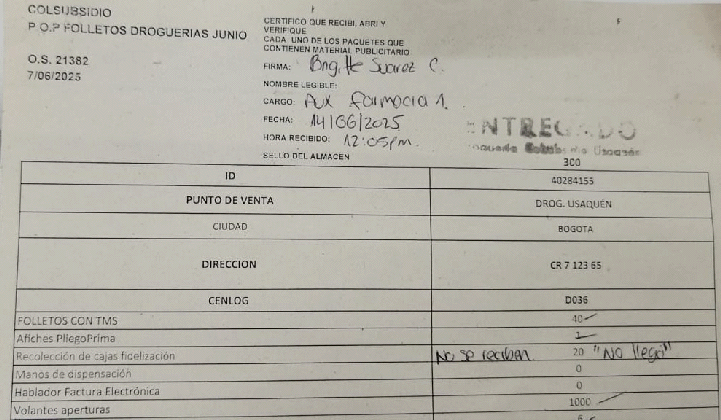 COLSUBSIDIO
P.O.P FOLLETOS DROGUERIAS JUNIO
O.S. 21382
7/06/2025
CERTIFICO QUE RECIBI, ABRI Y
VERIFIQUE
CADA UNO DE LOS PAQUETES QUE
CONTIENEN MATERIAL PUBLICITARIO
FIRMA: Brigitte Suarez C.
NOMBRE LEGIBLE:
CARGO: Aux farmacia 1.
FECHA: 14/06/2025
HORA RECIBIDO: 12:05pm.
SELLO DEL ALMACEN
ENTREGADO
Usaquén
300
ID 40284155
PUNTO DE VENTA DROG. USAQUÉN
CIUDAD BOGOTA
DIRECCION CR 7 123 65
CENLOG D036
FOLLETOS CON TMS 40
Afiches PliegoPrima 1
Recolección de cajas fidelización No se reciben 20 "No llegó"
Manos de dispensación 0
Hablador Factura Electrónica 0
Volantes aperturas 1000